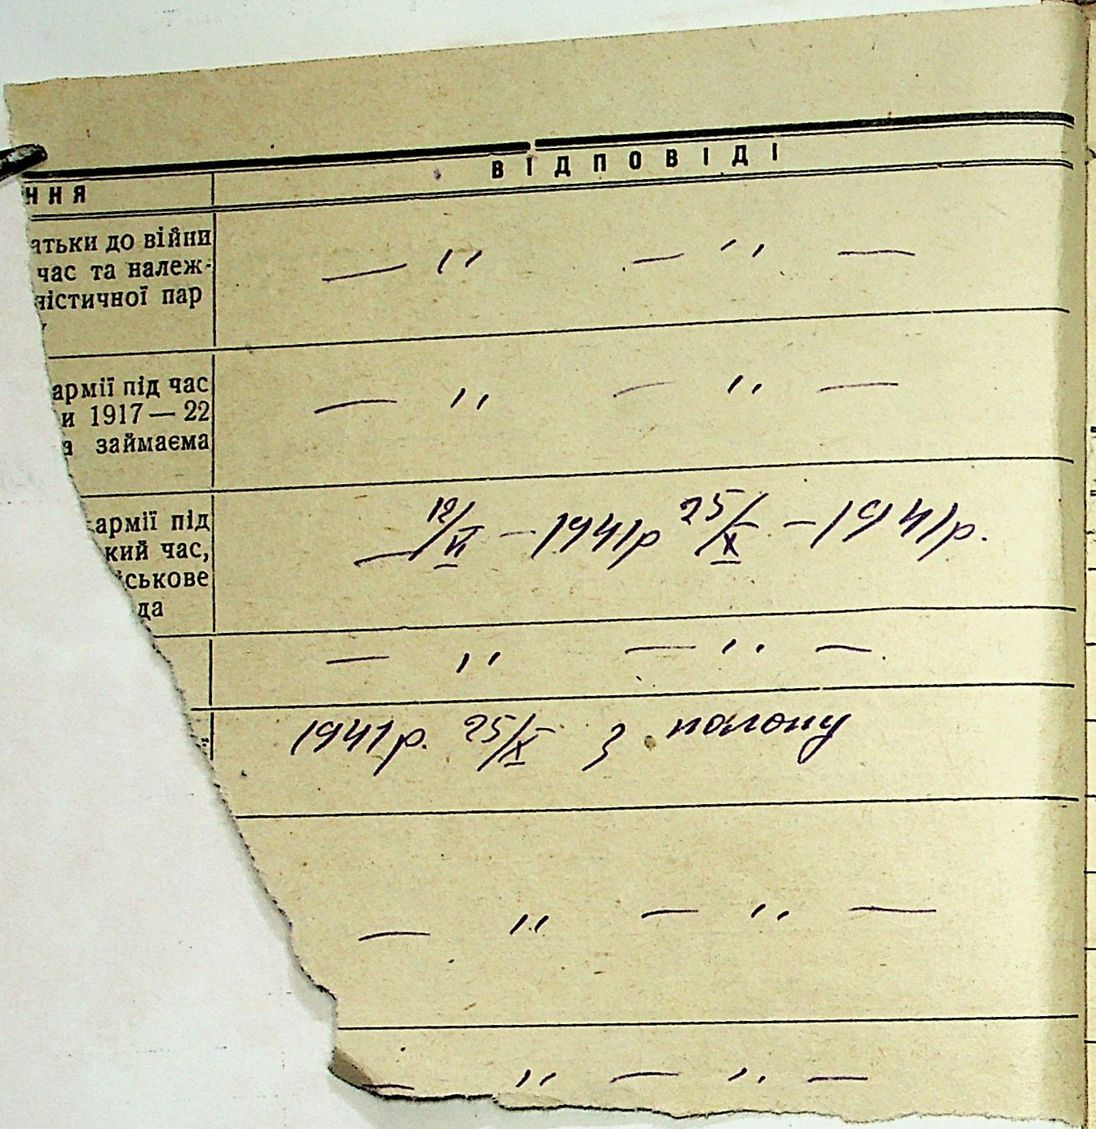 ННЯ
ВІДПОВІДІ
атьки до війни
час та належ-
ністичної пар
— " — " —
армії під час
и 1917—22
а займаєма
— " — " —
армії під
кий час,
йськове
да
— 12/VI — 1941р 25/X — 1941р.
— " — " —
1941р. 25/X З полону
— " — " —
— " — " —